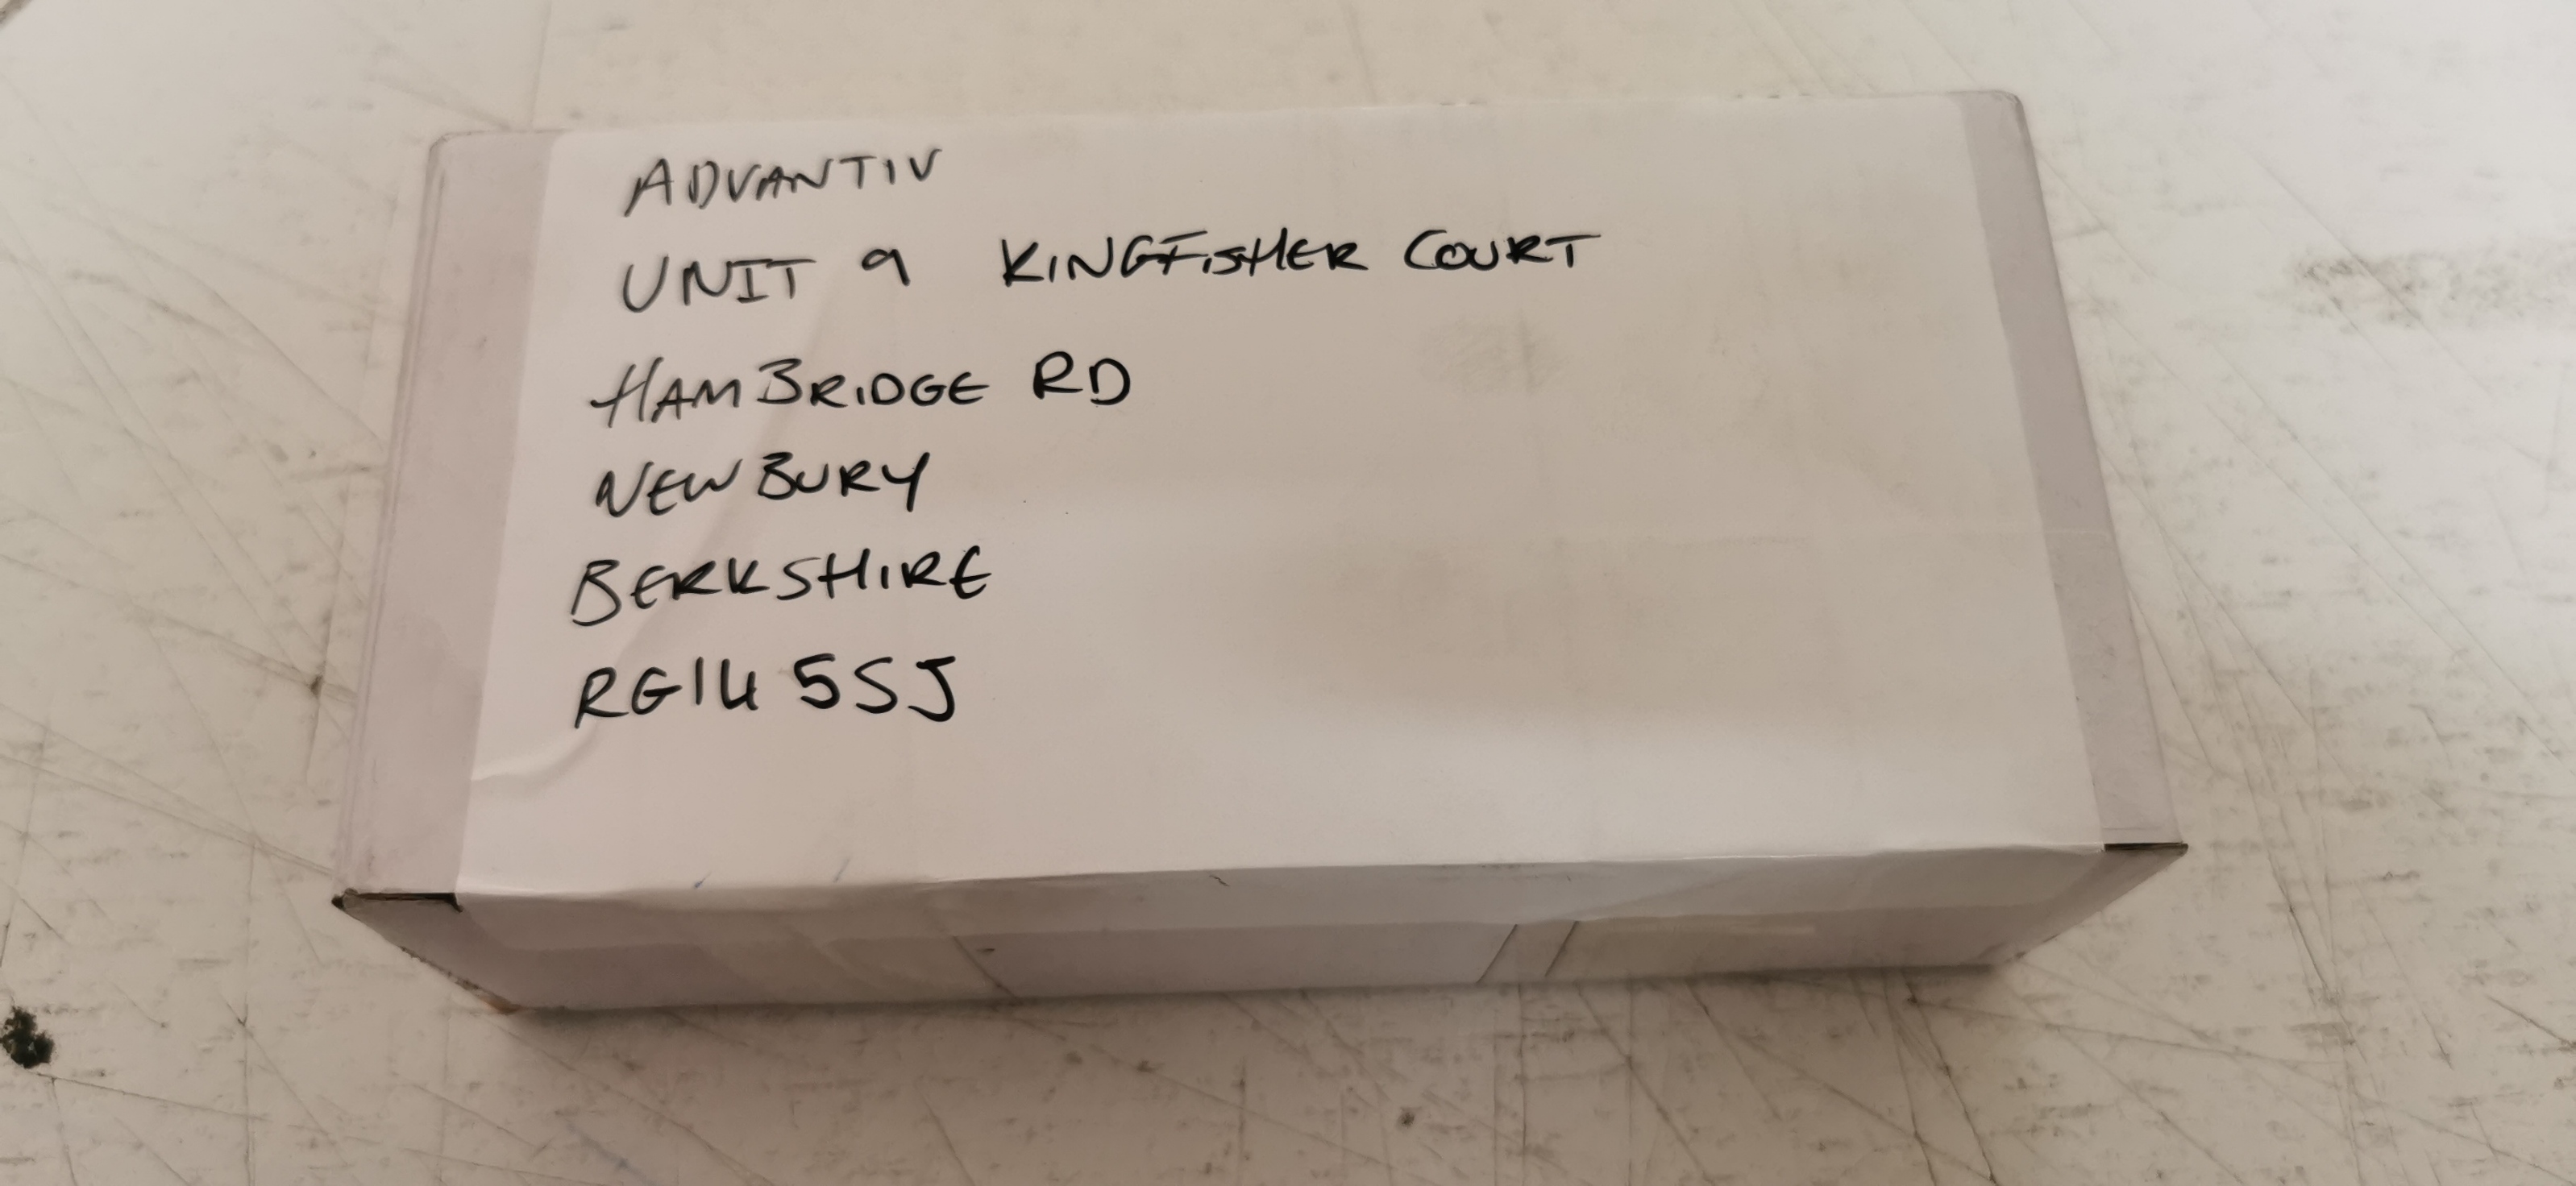 ADVANTIV
UNIT 9 KINGFISHER COURT
HAMBRIDGE RD
NEWBURY
BERKSHIRE
RG14 5SJ